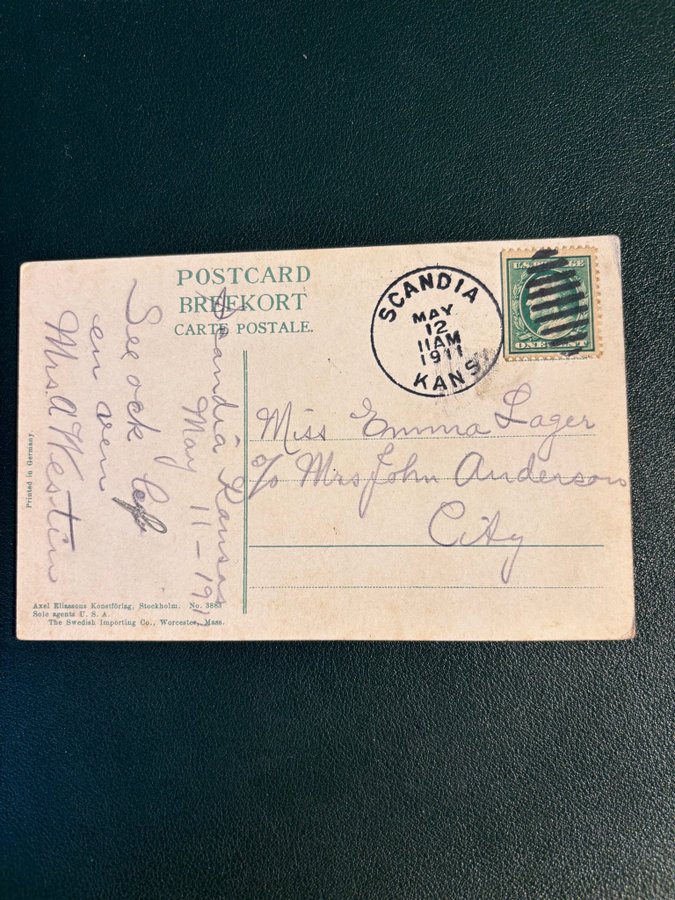 POSTCARD
BREFKORT
CARTE POSTALE.
SCANDIA
MAY
12
11AM
1911
KANS
ONE CENT
Miss Emma Lager
c/o Mrs John Anderson
City
Scandia Kansas
May 11-1911
See ock
en ven
Mrs A Westin
Printed in Germany
Axel Eliassons Konstförlag, Stockholm. No. 3883
Sole agents U. S. A.
The Swedish Importing Co., Worcester, Mass.